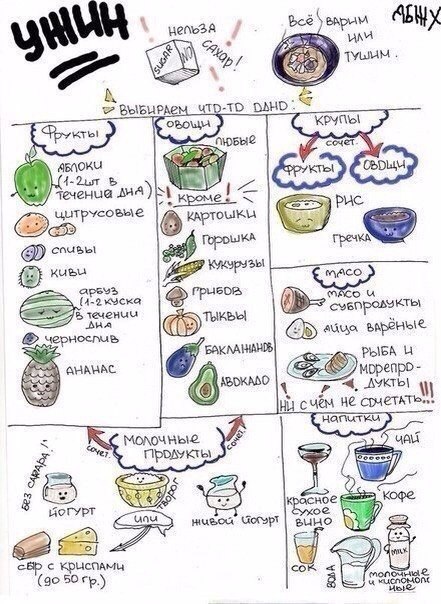 УЖИН
НЕЛЬЗА
САХАР!
SUGAR
NO
ВСЁ ВАРИМ
ИЛИ
ТУШИМ.
ВЫБИРАЕМ ЧТО-ТО ОДНО:
ФРУКТЫ
ЯБЛОКИ
(1-2ШТ В
ТЕЧЕНИИ ДНА)
ЦИТРУСОВЫЕ
СЛИВЫ
КИВИ
АРБУЗ
(1-2 КУСКА
В ТЕЧЕНИИ
ДНА
ЧЕРНОСЛИВ
АНАНАС
ОВОЩИ
ЛЮБЫЕ
! КРОМЕ !
КАРТОШКИ
ГОРОШКА
КУКУРУЗЫ
ГРИБОВ
ТЫКВЫ
БАКЛАЖАНОВ
АВОКАДО
КРУПЫ
СОЧЕТ.
ФРУКТЫ
ОВОЩИ
РИС
ГРЕЧКА
МАСО
МАСО И
СУБПРОДУКТЫ
ЯЙЦА ВАРЁНЫЕ
РЫБА И
МОРЕПРО-
ДУКТЫ
НИ С ЧЕМ НЕ СОЧЕТАТЬ...!!!
МОЛОЧНЫЕ
ПРОДУКТЫ
СОЧЕТ.
СОЧЕТ.
БЕЗ САХАРА!
ЙОГУРТ
ТВОРОГ
ИЛИ
ЖИВОЙ ЙОГУРТ
СЫР С КРИСПАМИ
(ДО 50 ГР.)
НАПИТКИ
ЧАЙ
КРАСНОЕ
СУХОЕ
ВИНО
КОФЕ
СОК
ВОДА
MILK
МОЛОЧНЫЕ
И КИСЛОМОЛОЧ
НЫЕ